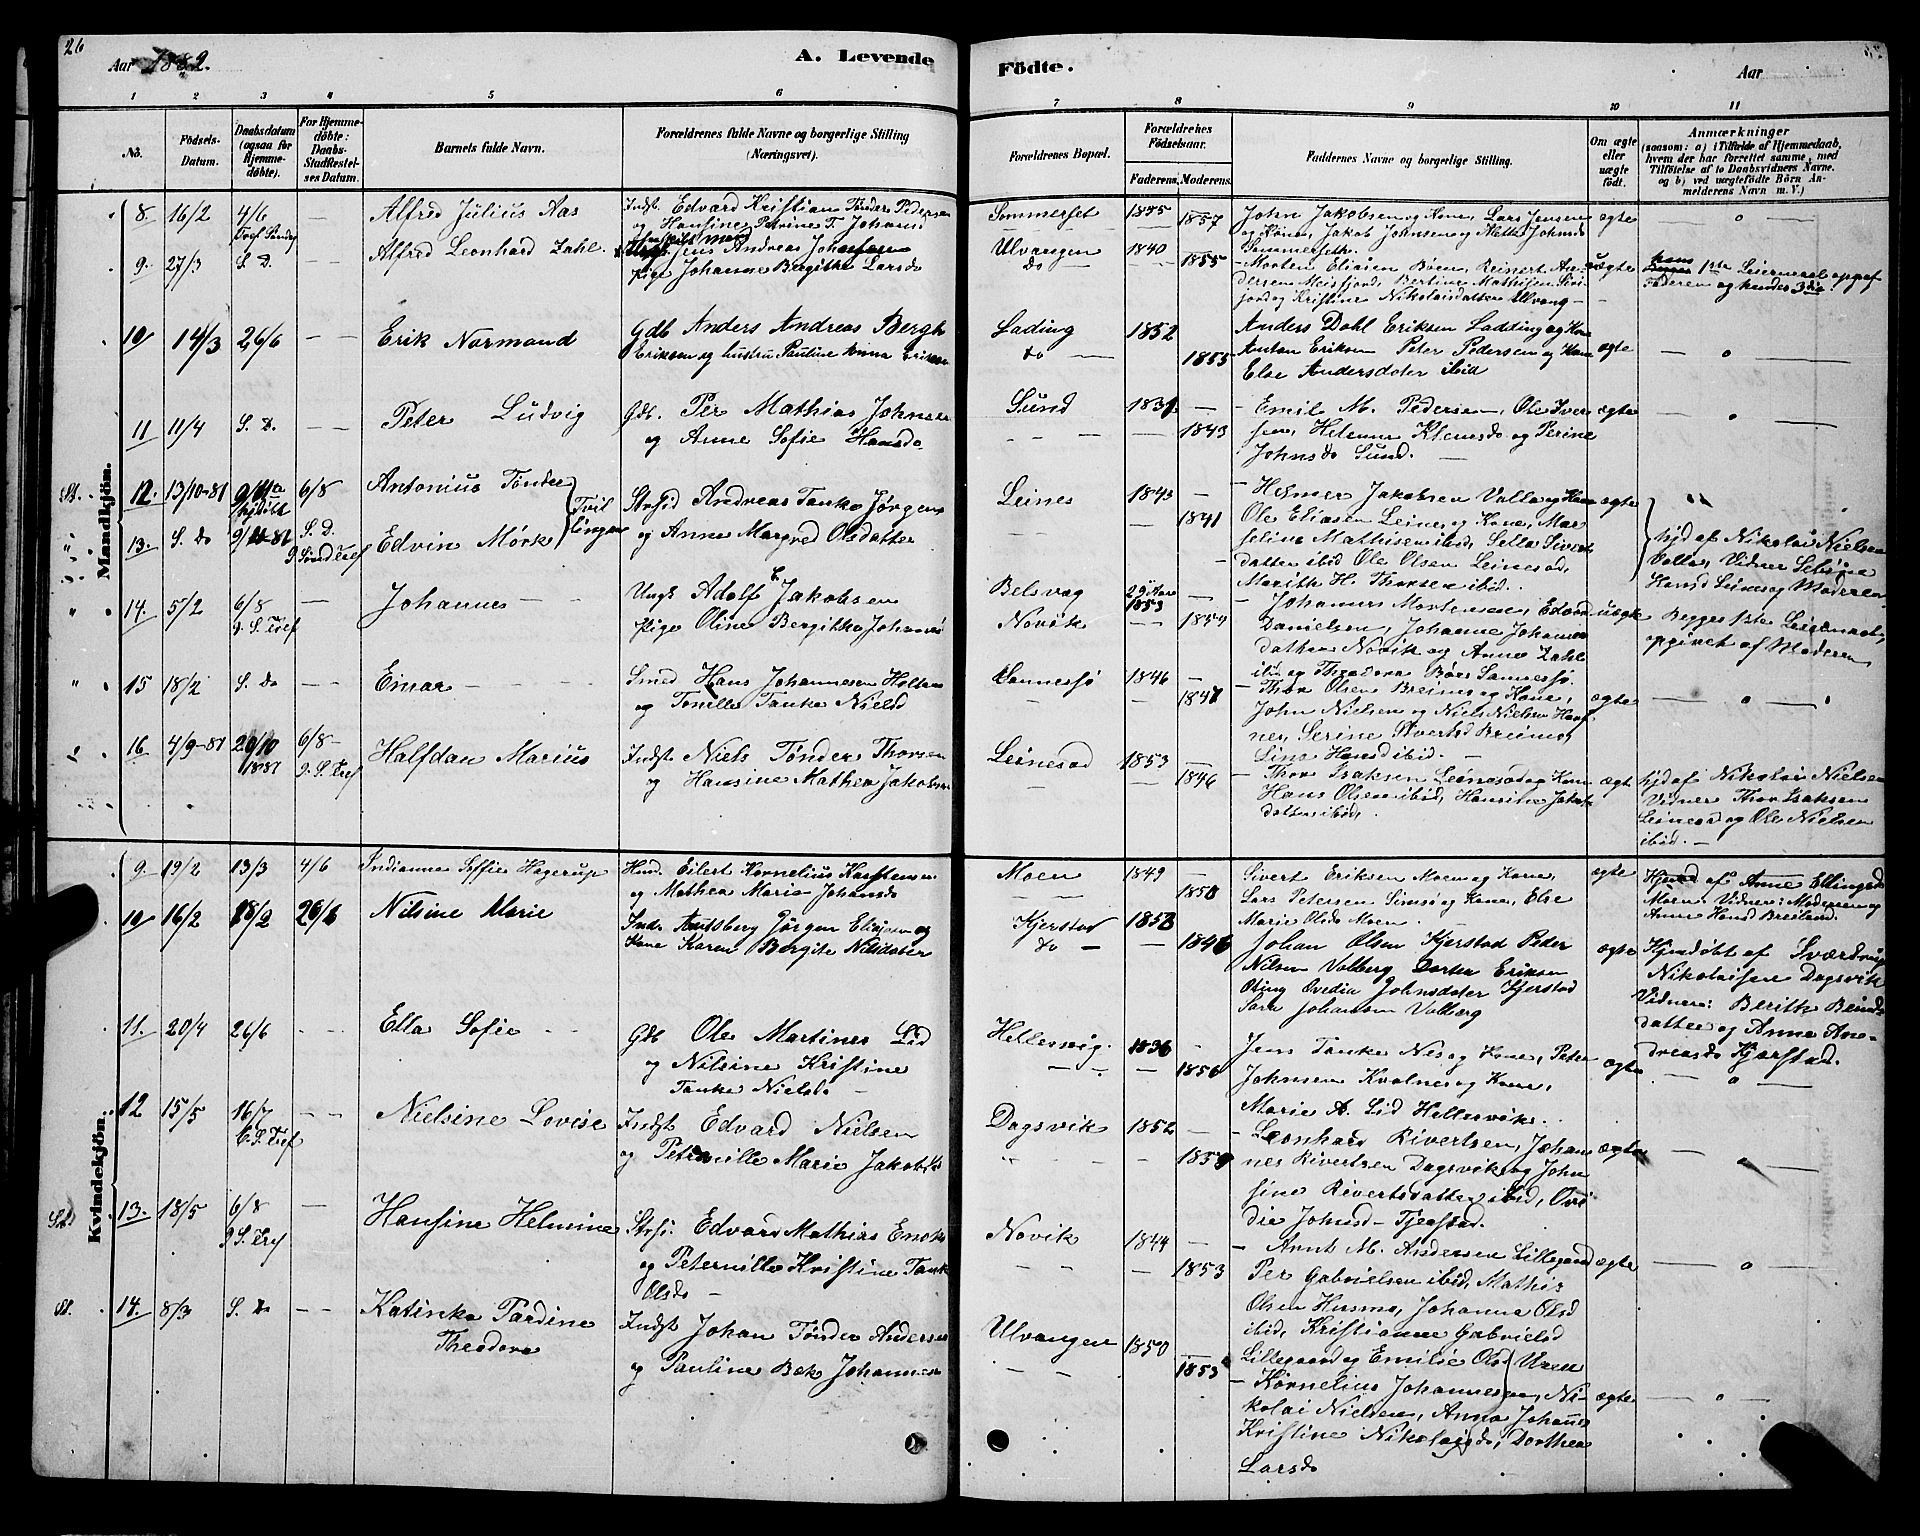 26
Aar 1882.
A. Levende
Födte.
Aar
1 2 3 4 5 6 7 8 9 10 11
No.
Födsels-Datum.
Daabsdatum (ogsaa for Hjemmedöbte).
For Hjemmedöbte: Daabs-Stadfæstelses Datum.
Barnets fulde Navn.
Forældrenes fulde Navne og borgerlige Stilling (Næringsvei).
Forældrenes Bopæl.
Forældrenes Födselsaar.
Faderens.
Moderens.
Faddernes Navne og borgerlige Stilling.
Om ægte eller uægte födt.
Anmærkninger (saasom: a) i Tilfælde af Hjemmedaab, hvem der har forrettet samme, med Tilföielse af to Daabsvidners Navne. og b) ved uægtefödte Börn Anmelderens Navn m. V.)
Mandkjön.
8 16/2 4/6 — Alfred Julius Aas
Indst Edvard Kristian Tønder Pedersen
og Hansine Petrine T. Johans
Sommerset 1857
John Jakobsen og Kone, Lars Jensen
og Kone, Jakob Johnsen og Mette Johnsd
Sommerseth.
ægte
9. 27/3 S. D. Alfred Leonhard Zahl
Jens Andreas Johansen
Pige Johanne Bergitte Larsd
Ulvangen do 1840 1855
Morten Eliasen Bøen, Reinert Andersen Meisfjord, Bertine Mathisen
og Kristine Nikolaisdatter Ulvang
uægte
1ste Leiermaal opgaf
Faderen og hendes 3die
10 14/3 26/6 — Erik Normand
Gdb Anders Andreas Bergh
Eriksen og hustru Pauline Anna Eriksen
Lading do 1852 1855
Anders Dahl Eriksen Ladding og Kone
Anton Eriksen Peter Pedersen og Kone
Else Andersdater ibid
ægte — o —
11 11/4 S. D. — Peter Ludvig
Gdb. Per Mathias Johnsen
og Anne Sofie Hansd
Sund 1843
Emil M. Pedersen, Ole Iversen,
Klemsd og Perine
Johnsd Sund.
ægte o
St. 12. 13/10-81 6/8 Antonius Tønder
Tvillinger
Strsid Andreas Tanke Jørgens
og Anne Margred Olsdatter
Leines 1843 1841
Helmer Jakobsen Valla og Kone
Ole Eliasen Leines og Kone, Mar
seline Mathisen ibid, Sella Sivert
datter ibid Ole Olsen Leinesod,
Marith H. Thorsen ibid.
ægte
13. S. D. S. D. Edvin Mørk
hjd af Nikolai Nielsen
Valla, Vidner
Hansd Leines og Moderen
14. 5/2 6/8 9. S. Tref — Johannes
Ungk Adolf Jakobsen
Pige Oline Bergitte Johans
Belsvag Novik 1853 1854
Johannes Mortensen, Edvard
Danielsen, Johanne Johannes
datter Novik og Anne Zahl
ibid og Theodora Børs Sannessø
uægte
Begges 1ste Leiermaal,
opgivet af Moderen
15 18/2 S. D. — Einar
Smed Hans Johannesen Holten
og Tonille Tanke Nielsd
Sannessø 1846 1847
Thor Olsen Breines og Kone,
John Nielsen og Niels Nielsen
Serine Sivertsd Breines,
Lina Hansd ibid.
ægte — o —
16 4/9-81 20/10 1881 6/8 9. S. Tref Halfdan Marius
Indst Niels Tønder Thorsen
og Hansine Mathea Jakobsen
Leinesod 1853 1846
Thor Isaksen Leinesod og Kone
Hans Olsen ibid, Hansine Jakob
datter ibid,
ægte
hjd af Nikolai Nielsen
Vidner Thor Isaksen
Leinesod og Ole Nielsen
ibid.
Kvindekjön.
9. 19/2 13/3 4/6 Indianna Soffie Hagerup
Eilert Kornelius Karstensen
og Mathea Maria Johansd
Moen 1849 1850
Sivert Eriksen Moen og Kone,
Lars Petersen og Kone, Else
Marie Olsd Moen
ægte
af Anne Ellingsd
Moen. Vidner: Moderen og
Anne Hansd Breiland.
10 16/2 Nilsine Marie
Inds Amtsberg Jørgen Eliasen og
Kone Karen Bergite Nilsdater
Kjerstad do 1846
Johan Olsen Kjerstad Peder
Nilsen Valberg Dorthea Eriksen
Ovedia Johnsdater Kjerstad
Sara Johansen Valberg
ægte
Hjemdøbt af Sværdrup
Nikolaisen Dagsvik
Vidner: Berith Berntsdatter og Anne Andreasd Kjærstad.
11. 20/4 26/6 Ella Sofie
Gdb Ole Martines Lid
og Nilsine Kristine
Tanke Nielsd
Hellesvig. 1836 1856
Jens Tanke Nes og Kone, Peter
Johnsen Kvalnes og Kone,
Marie A. Lid Hellesvik.
ægte — o —
12 15/5 16/7 Nielsine Lovise
Indst Edvard Nielsen
og Peternille Marie Jakobsd
Dagsvik 1852
Leonhard Rivertsen, Johan
nes Rivertsen Dagsvik og John
sine Rivertsdatter ibid, Ovi
die Johnsd Tjerstad.
ægte o
St. 13. 18/5 6/8 9 S. Tref Hansine Helmine
Strsi. Edvard Mathias Enok
og Peternille Kristine Tanke
Olsd
Novik 1844 1853
Arnt M. Andersen Lillegaard
Per Gabrielsen ibid, Mathis
Olsen Husmo, Johanna Olsd
ibid, Kristianne Gabrielsd
Lillegaard og Emilie Olsd
ægte — o —
St. 14. 8/3 S. D. — Katinka Pardine
Theodora
Indst Johan Tønder Andersen
og Pauline Bæk Johannes
Ulvangen 1850 1853
Kornelius Johannesen, Ni
kolai Nielsen, Anna Johans
Kristine Nikolaisd, Dorthea
Larsd
ægte — o —